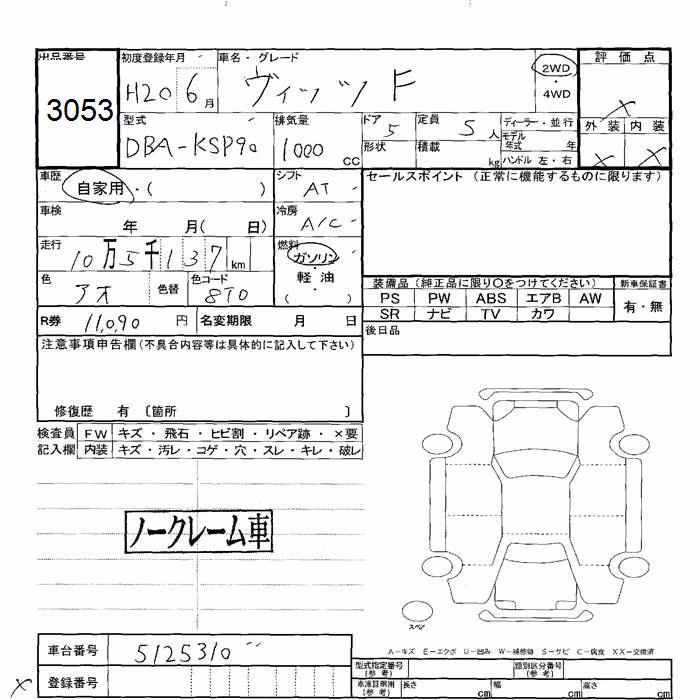 出品番号 初度登録年月 車名・グレード 2WD 評価点
3053 H20 6月 ヴィッツ F ・4WD ×
型式 排気量 ドア 5 定員 5人 ディーラー・並行 外装 内装
DBA-KSP90 1000cc 形状 積載 kg モデル年式 年 × ×
ハンドル 左・右
車歴 自家用・( ) シフト AT セールスポイント (正常に機能するものに限ります)
車検 年 月( 日) 冷房 A/C
走行 10万5千137km 燃料 ガソリン・軽油・( )
色 アオ 色替 色コード 8T0 装備品 (純正品に限り○をつけてください) 新車保証書
PS PW ABS エアB AW 有・無
R券 11,090円 名変期限 月 日 SR ナビ TV カワ
注意事項申告欄 (不具合内容等は具体的に記入して下さい) 後日品
修復歴 有 〔箇所 〕
検査員 FW キズ・飛石・ヒビ割・リペア跡・×要
記入欄 内装 キズ・汚レ・コゲ・穴・スレ・キレ・破レ
ノークレーム車
スペア
A-キズ E-エクボ U-凹み W-補修跡 S-サビ C-腐食 XX-交換済
車台番号 5125310 型式指定番号(参考) 類別区分番号(参考)
× 登録番号 車庫証明用(参考) 長さ cm 幅 cm 高さ cm